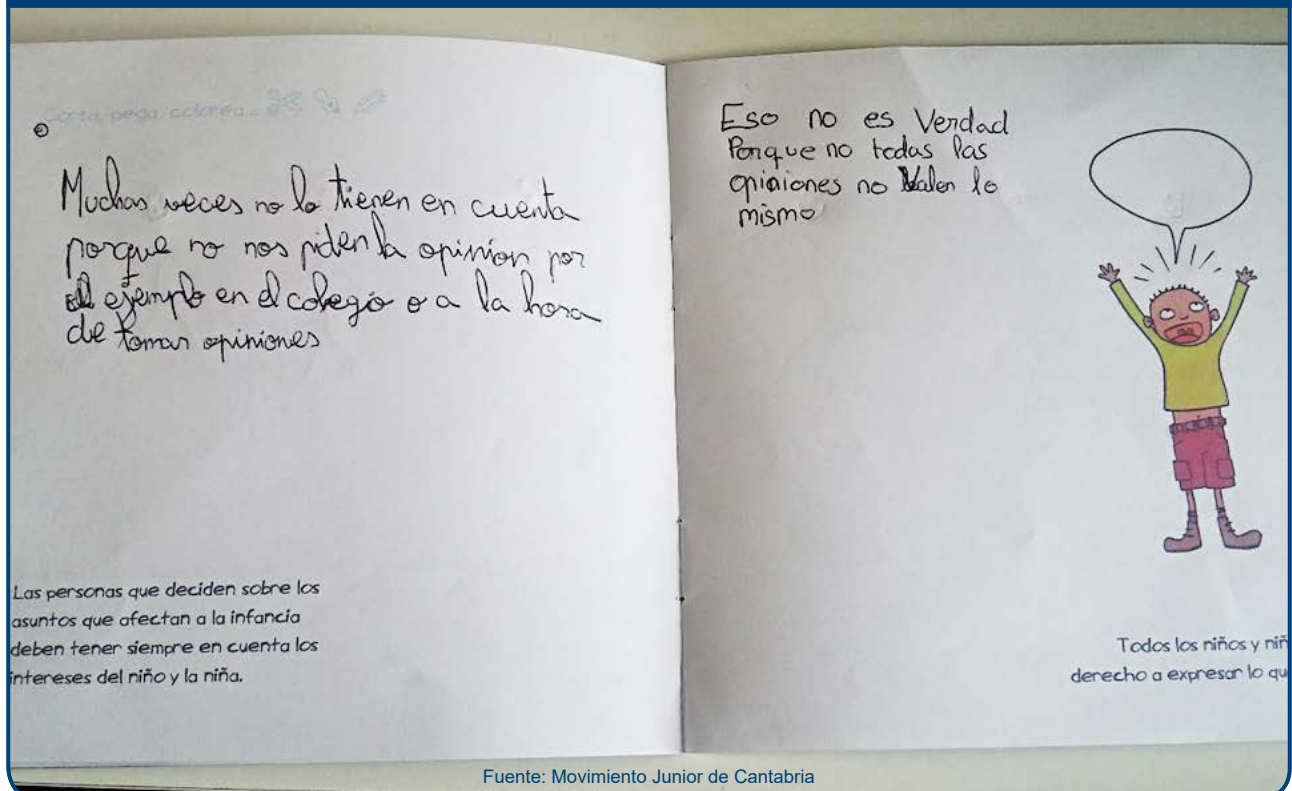 Corta, pega, colorea...
Muchas veces no lo tienen en cuenta
porque no nos piden la opinion por
ejemplo en el colegio o a la hora
de tomar opiniones
Las personas que deciden sobre los
asuntos que afectan a la infancia
deben tener siempre en cuenta los
intereses del niño y la niña.
Eso no es Verdad
Porque no todas las
opiniones no Valen lo
mismo
Todos los niños y niñ
derecho a expresar lo qu
Fuente: Movimiento Junior de Cantabria